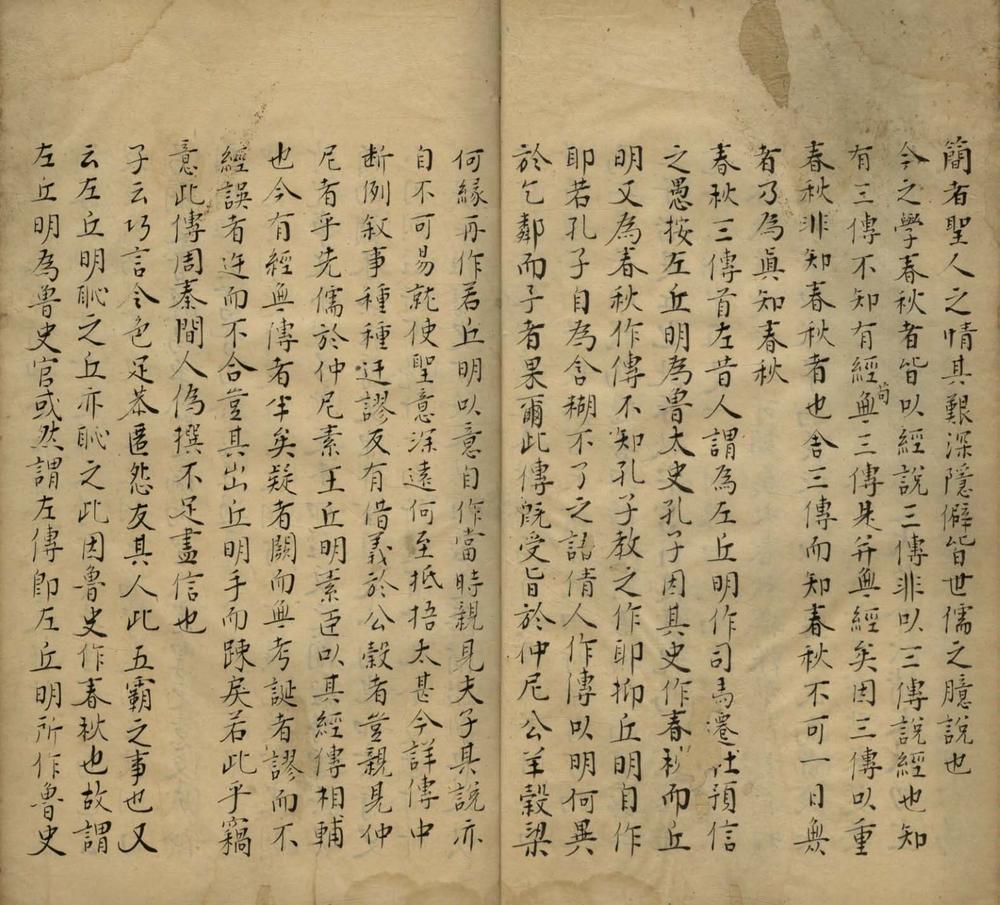 簡者聖人之情其艱深隱僻皆世儒之臆說也
今之學春秋者皆以經說三傳非以三傳說經也知
有三傳不知有經苟無三傳是并無經矣因三傳以重
春秋非知春秋者也舍三傳而知春秋不可一日無
者乃為真知春秋
春秋三傳首左昔人謂為左丘明作司馬遷杜預信
之愚按左丘明為魯太史孔子因其史作春秋而丘
明又為春秋作傳不知孔子教之作耶抑丘明自作
耶若孔子自為含糊不了之語倩人作傳以明何異
於乞鄰而子者果爾此傳既受旨於仲尼公羊穀梁
何緣再作若丘明以意自作當時親見夫子其說亦
自不可易就使聖意深遠何至抵捂太甚今詳傳中
断例叙事種種迂謬反有借義於公穀者豈親見仲
尼者乎先儒於仲尼素王丘明素臣以其經傳相輔
也今有經無傳者半矣疑者闕而無考誕者謬而不
經誤者迕而不合豈其出丘明手而踈戾若此乎竊
意此傳周秦間人偽撰不足盡信也
子云巧言令色足恭匿怨友其人此五霸之事也又
云左丘明恥之丘亦恥之此因魯史作春秋也故謂
左丘明為魯史官或然謂左傳即左丘明所作魯史